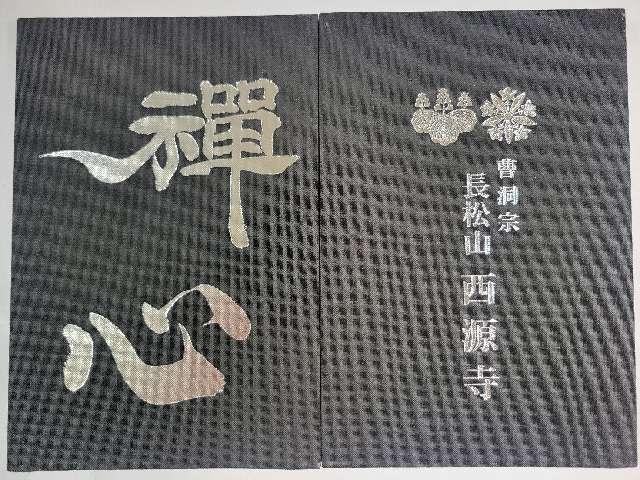 曹洞宗
長松山 西源寺
禅心